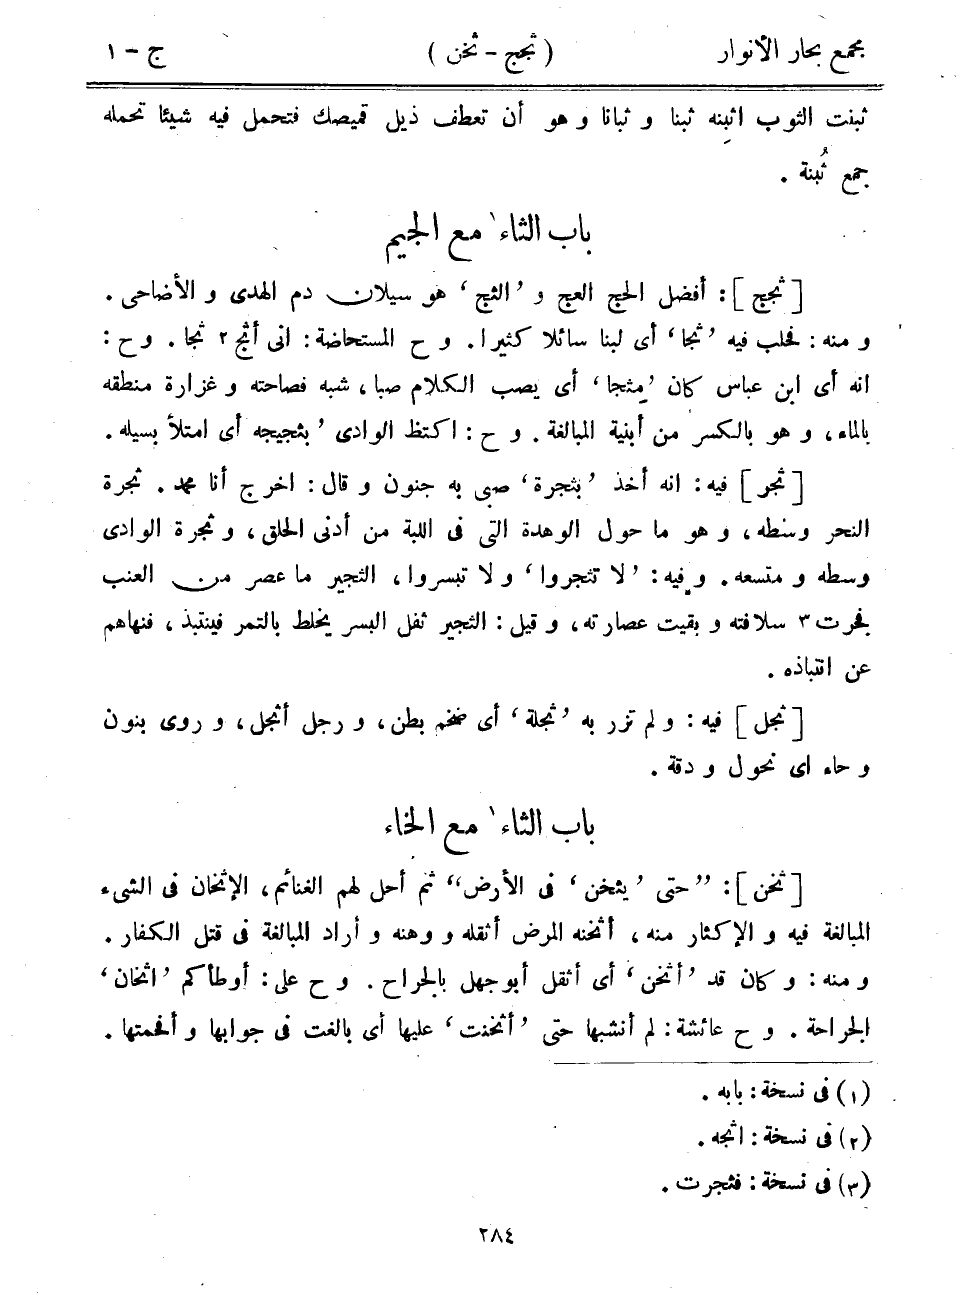 مجمع بحار الأنوار ( ثجج - ثخن ) ج - ١
ثبنت الثوب اثبنه ثبنا و ثبانا و هو أن تعطف ذيل قميصك فتحمل فيه شيئا تحمله
جمع ثُبنة .
باب الثاء١ مع الجيم
[ثجج]: أفضل الحج العج و ’الثج‘ هو سيلان دم الهدى و الأضاحى .
و منه: فحلب فيه ’ثجا‘ أى لبنا سائلا كثيرا. و ح المستحاضة: انى أثج ٢ ثجا. و ح:
انه أى ابن عباس كان ’مِثجا‘ أى يصب الكلام صبا، شبه فصاحته و غزارة منطقه
بالماء، و هو بالكسر من أبنية المبالغة. و ح: اكتظ الوادى ’بثجيجه أى امتلأ بسيله.
[ثجر] فيه: انه أخذ ’بثجرة‘ صبى به جنون و قال: اخرج أنا محمد. ثجرة
النحر وسطه، و هو ما حول الوهدة التى فى اللبة من أدنى الحلق، و ثجرة الوادى
وسطه و متسعه. و فيه: ’لا تثجروا‘ و لا تبسروا، الثجير ما عصر من العنب
فجرت ٣ سلافته و بقيت عصارته، و قيل: الثجير ثفل البسر يخلط بالتمر فينتبذ، فنهاهم
عن انتباذه .
[ثجل] فيه: و لم تزر به ’ثجلة‘ أى ضخم بطن، و رجل أثجل، و روى بنون
و حاء اى نحول و دقة .
باب الثاء١ مع الخاء
[ثخن]: ’’حتى ’يثخن‘ فى الأرض‘‘ ثم أحل لهم الغنائم، الإثخان فى الشىء
المبالغة فيه و الإكثار منه، أثخنه المرض أثقله و وهنه و أراد المبالغة فى قتل الكفار .
و منه: و كان قد ’أثخن‘ أى أثقل أبو جهل بالجراح . و ح على: أوطأكم ’اثخان‘
الجراحة . و ح عائشة: لم أنشبها حتى ’أثخنت‘ عليها أى بالغت فى جوابها و أفحمتها .
(١) فى نسخة: بابه .
(٢) فى نسخة: اثجه .
(٣) فى نسخة: فثجرت .
٢٨٤